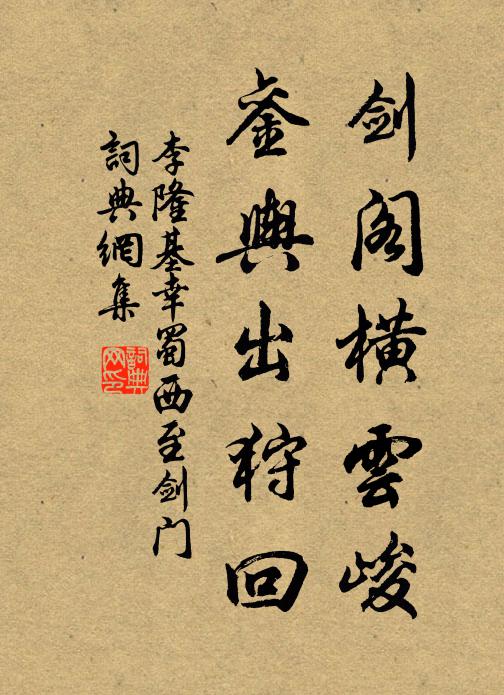 剑阁横雲峻
銮輿出狩回
李隆基幸蜀西至剑门
詞典網集